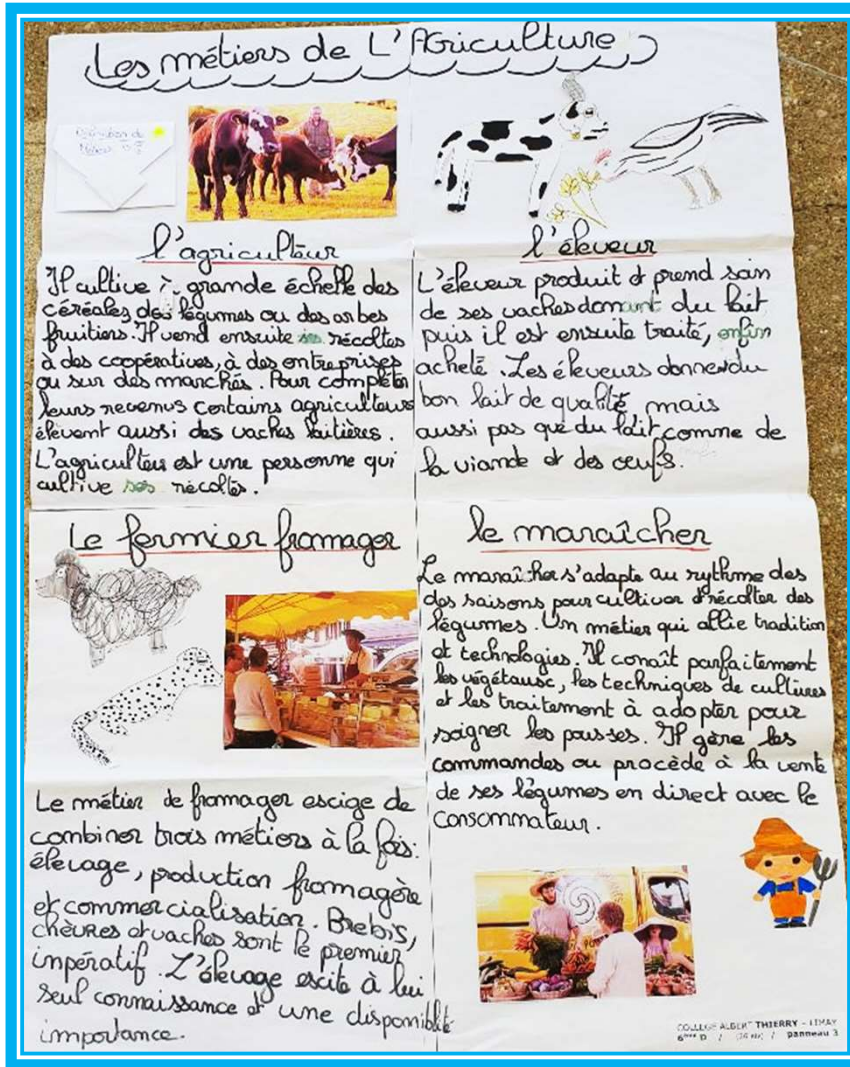 Les métiers de L'AGRICULTURE
Définition de
l'agriculteur
Il cultive à grande échelle des
céréales des légumes ou des arbes
fruitiers. Il vend ensuite ses récoltes
à des coopératives, à des entreprises
ou sur des marchés. Pour compléter
leurs revenus certains agriculteurs
élèvent aussi des vaches laitières.
L'agriculteur est une personne qui
cultive ses récoltes.
l'éleveur
L'éleveur produit et prend soin
de ses vaches donnant du lait
puis il est ensuite traité, enfin
acheté. Les éleveurs donnent du
bon lait de qualité mais
aussi pas que du lait comme de
la viande et des œufs.
Le fermier fromager
Le métier de fromager escige de
combiner trois métiers à la fois:
élevage, production fromagère
et commercialisation. Brebis,
chèvres et vaches sont le premier
impératif. L'élevage escite à lui
seul connaissance et une disponiblité
importance.
le maraîcher
Le maraîcher s'adapte au rythme des
des saisons pour cultiver et récolter des
légumes. Un métier qui allie tradition
et technologies. Il conaît parfaitement
les végétausc, les techniques de cultures
et les traitement à adopter pour
soigner les pousses. Il gère les
commandes ou procède à la vente
de ses légumes en direct avec le
consommateur.
COLLEGE ALBERT THIERRY - LIMAY
6ème D / / panneau 3